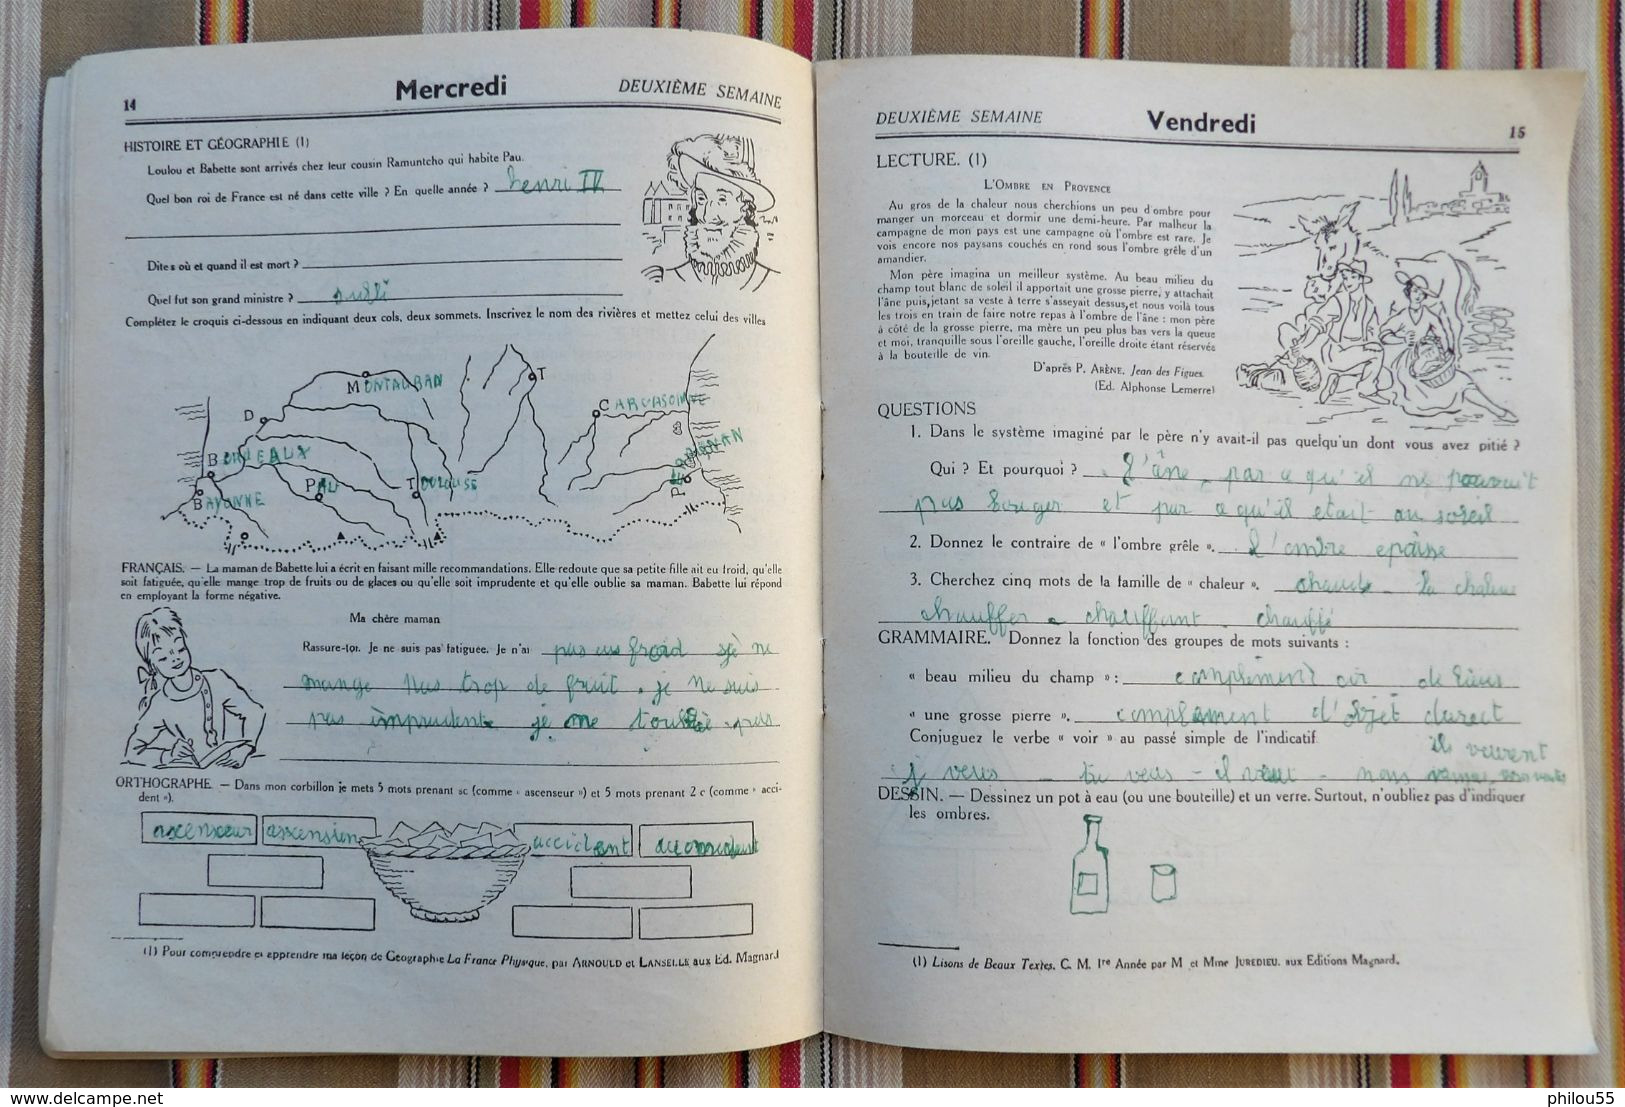 14 Mercredi DEUXIÈME SEMAINE
HISTOIRE ET GÉOGRAPHIE (1)
Loulou et Babette sont arrivés chez leur cousin Ramuntcho qui habite Pau.
Quel bon roi de France est né dans cette ville ? En quelle année ? henri IV
Dites où et quand il est mort ?
Quel fut son grand ministre ? sulli
Complétez le croquis ci-dessous en indiquant deux cols, deux sommets. Inscrivez le nom des rivières et mettez celui des villes
MONTAUBAN
T
D
CARCASONNE
BORDEAUX
BAYONNE
PAU
TOULOUSE
P
FRANÇAIS. — La maman de Babette lui a écrit en faisant mille recommandations. Elle redoute que sa petite fille ait eu froid, qu'elle
soit fatiguée, qu'elle mange trop de fruits ou de glaces ou qu'elle soit imprudente et qu'elle oublie sa maman. Babette lui répond
en employant la forme négative.
Ma chère maman
Rassure-toi. Je ne suis pas fatiguée. Je n'ai pas eu froid je ne
mange pas trop de fruit. je ne suis
pas imprudente je ne pas
ORTHOGRAPHE — Dans mon corbillon je mets 5 mots prenant sc (comme « ascenseur ») et 5 mots prenant 2 c (comme « acci-
dent »).
ascenseur ascension accident
(1) Pour comprendre et apprendre ma leçon de Géographie La France Physique, par ARNOULD et LANSELLE aux Ed. Magnard
DEUXIÈME SEMAINE Vendredi 15
LECTURE. (1)
L'OMBRE EN PROVENCE
Au gros de la chaleur nous cherchions un peu d'ombre pour
manger un morceau et dormir une demi-heure. Par malheur la
campagne de mon pays est une campagne où l'ombre est rare. Je
vois encore nos paysans couchés en rond sous l'ombre grêle d'un
amandier.
Mon père imagina un meilleur système. Au beau milieu du
champ tout blanc de soleil il apportait une grosse pierre, y attachait
l'âne puis,jetant sa veste à terre s'asseyait dessus,et nous voilà tous
les trois en train de faire notre repas à l'ombre de l'âne : mon père
à côté de la grosse pierre, ma mère un peu plus bas vers la queue
et moi, tranquille sous l'oreille gauche, l'oreille droite étant réservée
à la bouteille de vin.
D'après P. ARÈNE. Jean des Figues.
(Ed. Alphonse Lemerre)
QUESTIONS
1. Dans le système imaginé par le père n'y avait-il pas quelqu'un dont vous avez pitié ?
Qui ? Et pourquoi ? L'âne, par ce qu'il ne pouvait
pas bouger et par ce qu'il etait au soleil
2. Donnez le contraire de « l'ombre grêle ». L'ombre epaisse
3. Cherchez cinq mots de la famille de « chaleur ». chaude - la chaleur
chauffer - chauffant - chauffé
GRAMMAIRE. Donnez la fonction des groupes de mots suivants :
« beau milieu du champ » : complément cir de lieus
« une grosse pierre ». complement d'objet durect
Conjuguez le verbe « voir » au passé simple de l'indicatif ils veurent
je veus - tu veus - il veut - nous
DESSIN. — Dessinez un pot à eau (ou une bouteille) et un verre. Surtout, n'oubliez pas d'indiquer
les ombres.
(1) Lisons de Beaux Textes. C. M. 1re Année par M et Mme JUREDIEU. aux Editions Magnard.
delcampe.net
philou55